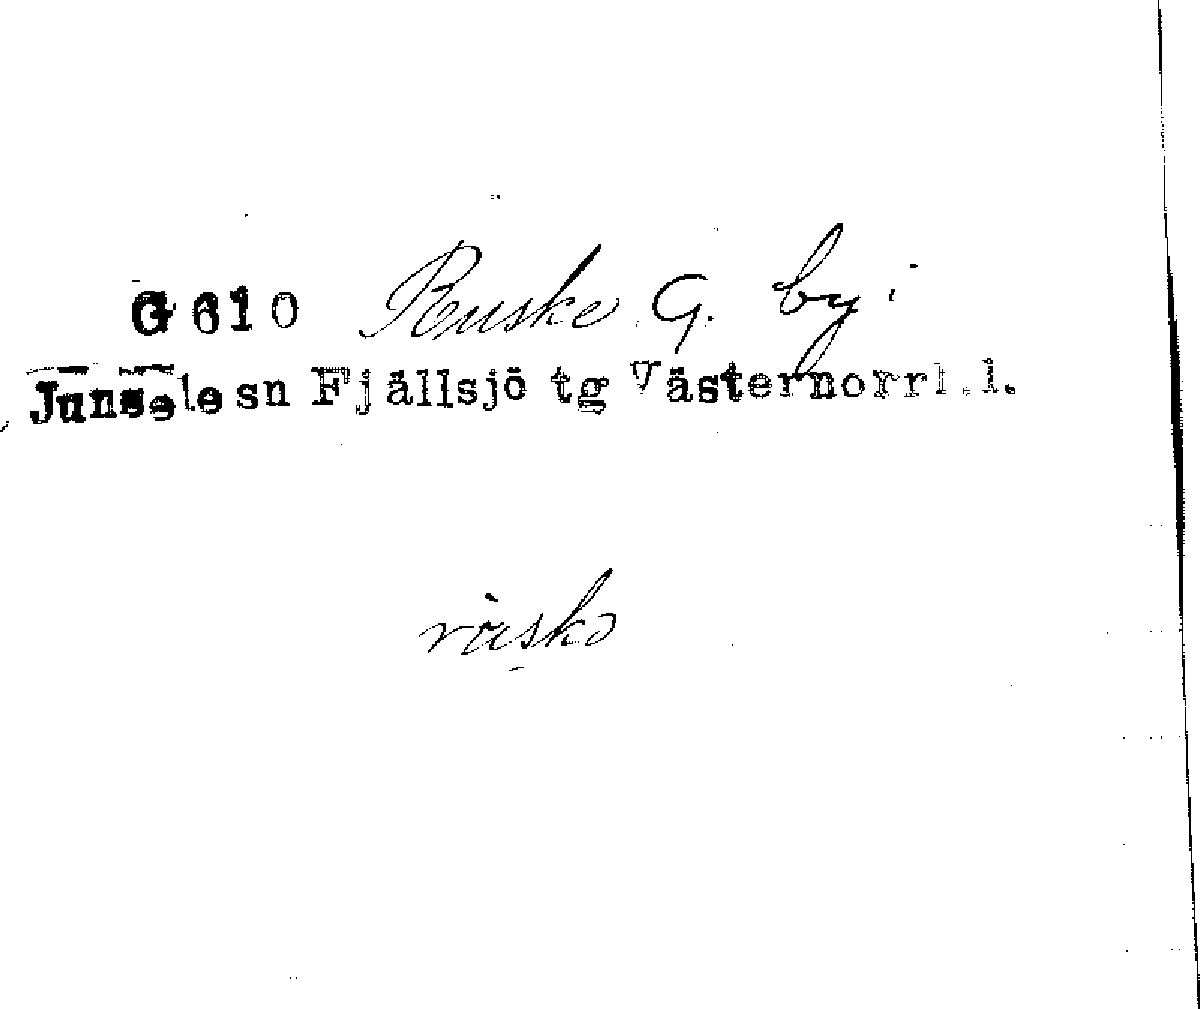 G 610 Ruske G. by i
Junsele sn Fjällsjö tg Västernorrl.l.